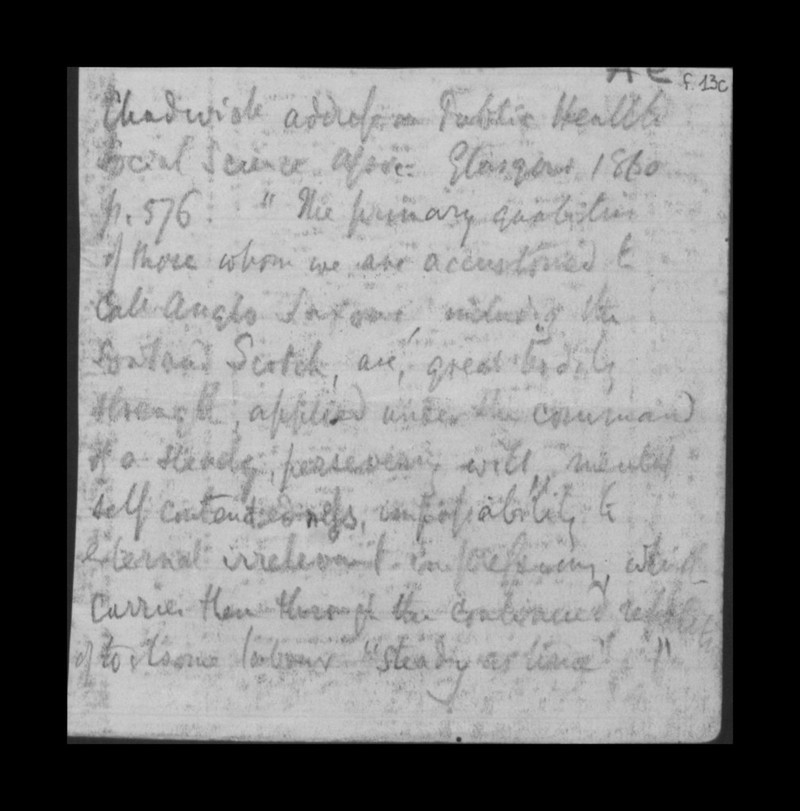 f. 13c
Chadwick address on Public Health
Social Science Assoc: Glasgow 1860
p. 576. " The primary qualities
of those whom we are accustomed to
call Anglo Saxons including the
Lowland Scotch, are, great bodily
strength, applied under the command
of a steady, persevering will, mental
self contentedness, impassibility to
external irrelevant impressions, which
carries them through the continued
of toilsome labour "steady as time". "